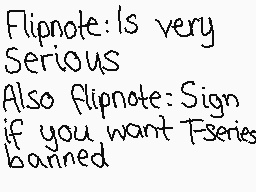 Flipnote: Is very
Serious
Also flipnote: Sign
if you want T-series
banned